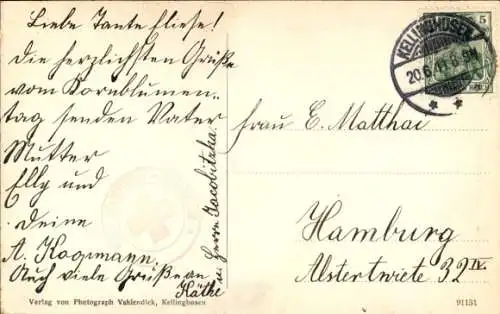 Liebe Tante Eliese!
Die herzlichsten Grüße
vom Kornblumen-
tag senden Vater
Mutter
Elly und
Deine
A. Kagmann.
Auch viele Grüße an
Käthe
u. Herrn Jacobitzka.
KELLINGHUSEN
20.6.11. 8-9N
5
Frau E. Matthai
Hamburg
Alstertwiete 32 IV.
Verlag von Photograph Vahlendick, Kellinghusen
91151